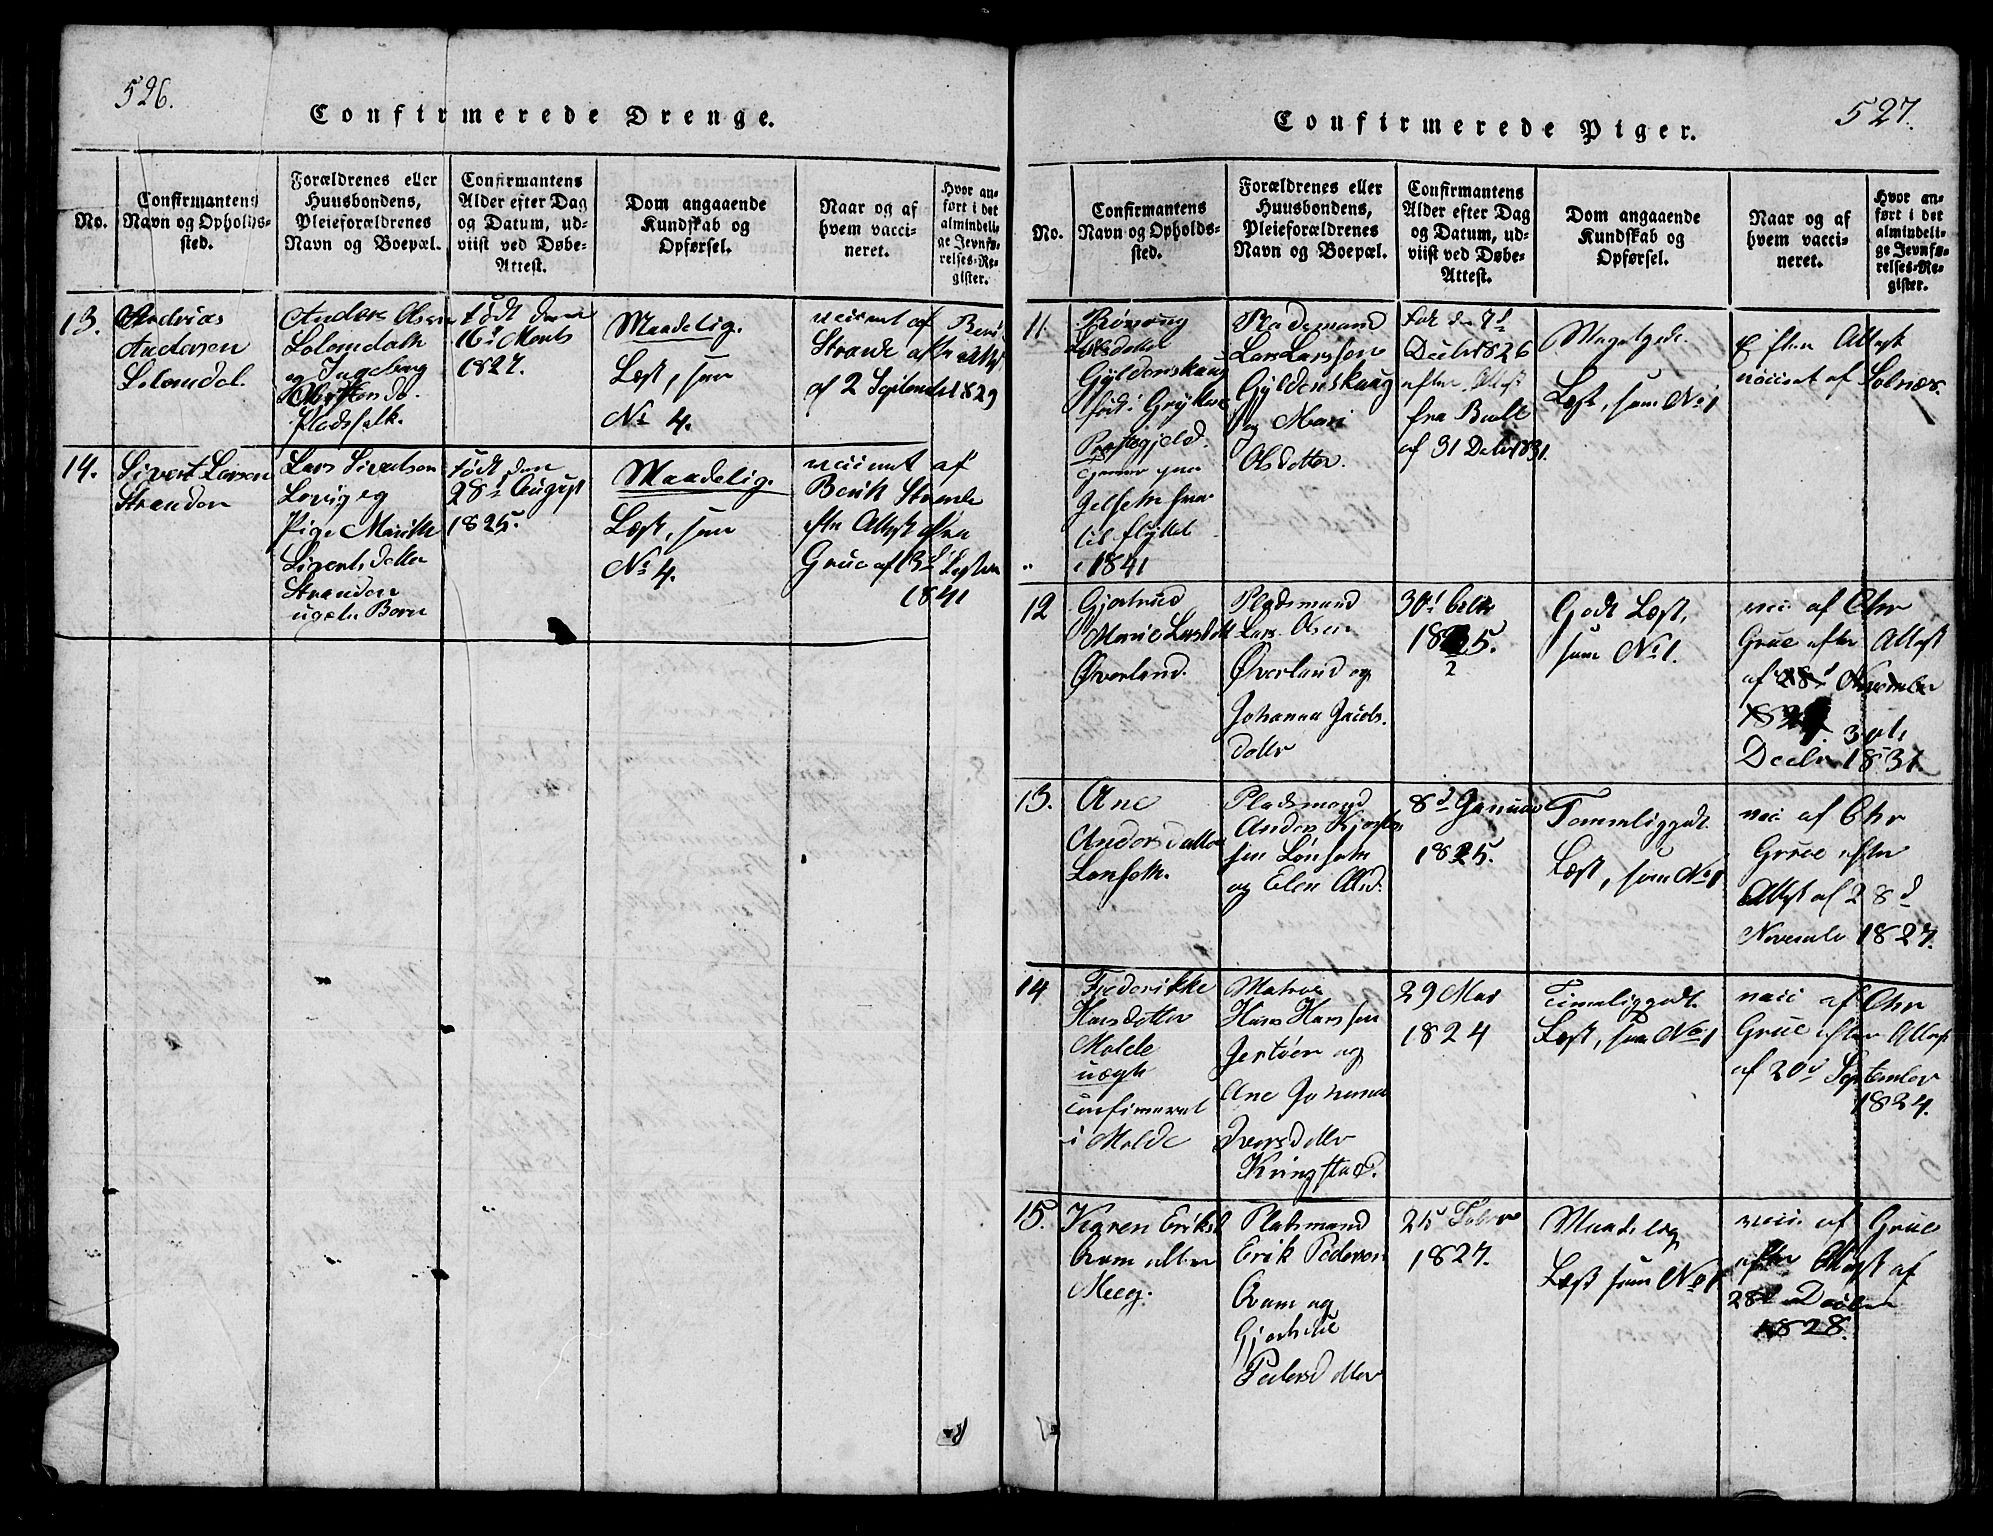 526.
Confirmerede Drenge.
No.
Confirmantens
Navn og Opholds-
sted.
Forældrenes eller
Huusbondens,
Pleieforældrenes
Navn og Boepæl.
Confirmantens
Alder efter Dag
og Datum, ud-
viist ved Døbe-
Attest.
Dom angaaende
Kundskab og
Opførsel.
Naar og af
hvem vacci-
neret.
Hvor an-
ført i det
almindeli-
ge Jevnfø-
relses-Re-
gister.
13.
Andreas
Andersen
Solemdal.
Anders Olsen
Solemdal
og Ingeborg
Pladsfolk.
Født den
16d Marts
1827.
Maadelig.
Læst, som
No 4.
af
Strande efter Attest
af 2 September 1829
14.
Sivert Larsen
Stranden
Lars Sivertsen
og
Pige Marith
Siverts datter
Stranden
Født den
28d August
1825.
Maadelig.
Læst, som
No 4.
af
Strande
efter Attest fra
Grue af 13
1841
527.
Confirmerede Piger.
No.
Confirmantens
Navn og Opholds-
sted.
Forældrenes eller
Huusbondens,
Pleieforældrenes
Navn og Boepæl.
Confirmantens
Alder efter Dag
og Datum, ud-
viist ved Døbe-
Attest.
Dom angaaende
Kundskab og
Opførsel.
Naar og af
hvem vacci-
neret.
Hvor an-
ført i det
almindeli-
ge Jevnfø-
relses-Re-
gister.
11
Larsdatter
Gyldenskaug
født i
Præstegjeld.
til flyttet
1841
Pladsmand
Lars Larssen
Gyldenskaug
og Mari
Olsdatter.
7d
Decbr 1826
efter Attest
fra Bull
af 31 Decbr 1831.
Meget godt.
Læst, som No 1
efter Attest
af
12
Gjertrud
Marie Larsdatt
Øverland.
Pladsmand
Lars Olsen
Øverland og
Johanna Jacobs-
datter
30d
1825.
2
Godt Læst,
som No 1.
vacc af Chr
Grue efter Attest
af 28d November
Decbr 1831.
13.
Ane
Andersdatter
Lønseth.
Pladsmand
Anders
sen Lønseth
og Elen Olsd.
8d Januar
1825.
Temmelig godt.
Læst, som No 1
vacc af Chr
Grue efter
Attest af 28d
Novembr 1827.
14
Frederikke
Hansdatter
Molde
uægte
confirmeret
i Molde
Matros
Hans Hanssen
og
Ane Johanna
Iversdatter
Kringstad.
29 Mai
1824
Temmelig godt.
Læst, som No 1
vacc af Chr
Grue efter Attest
af 20d September
1824.
15.
Karen Eriksd
Qvam eller
Meeg.
Pladsmand
Erik Pedersen
Qvam og
Gjertrue
Pedersdatter
25 Febr
1827.
Maadelig
Læst som No 1
vacc af Grue
efter Attest af
28d Decbr
1828.